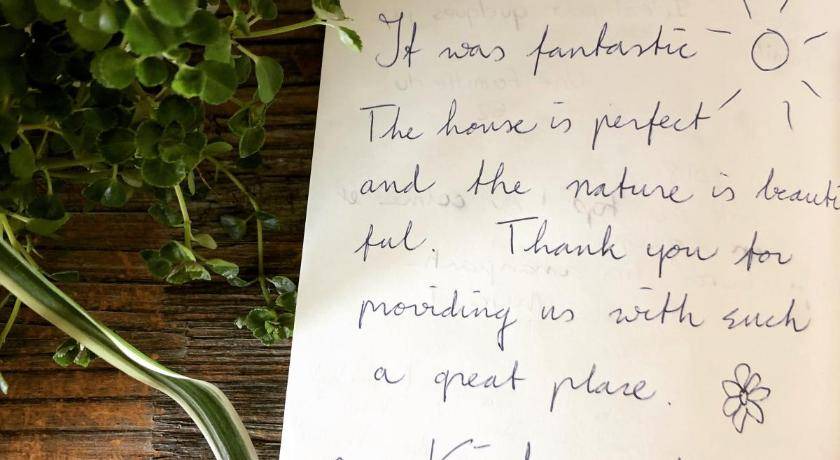 It was fantastic
The house is perfect
and the nature is beauti
ful. Thank you for
providing us with such
a great place.